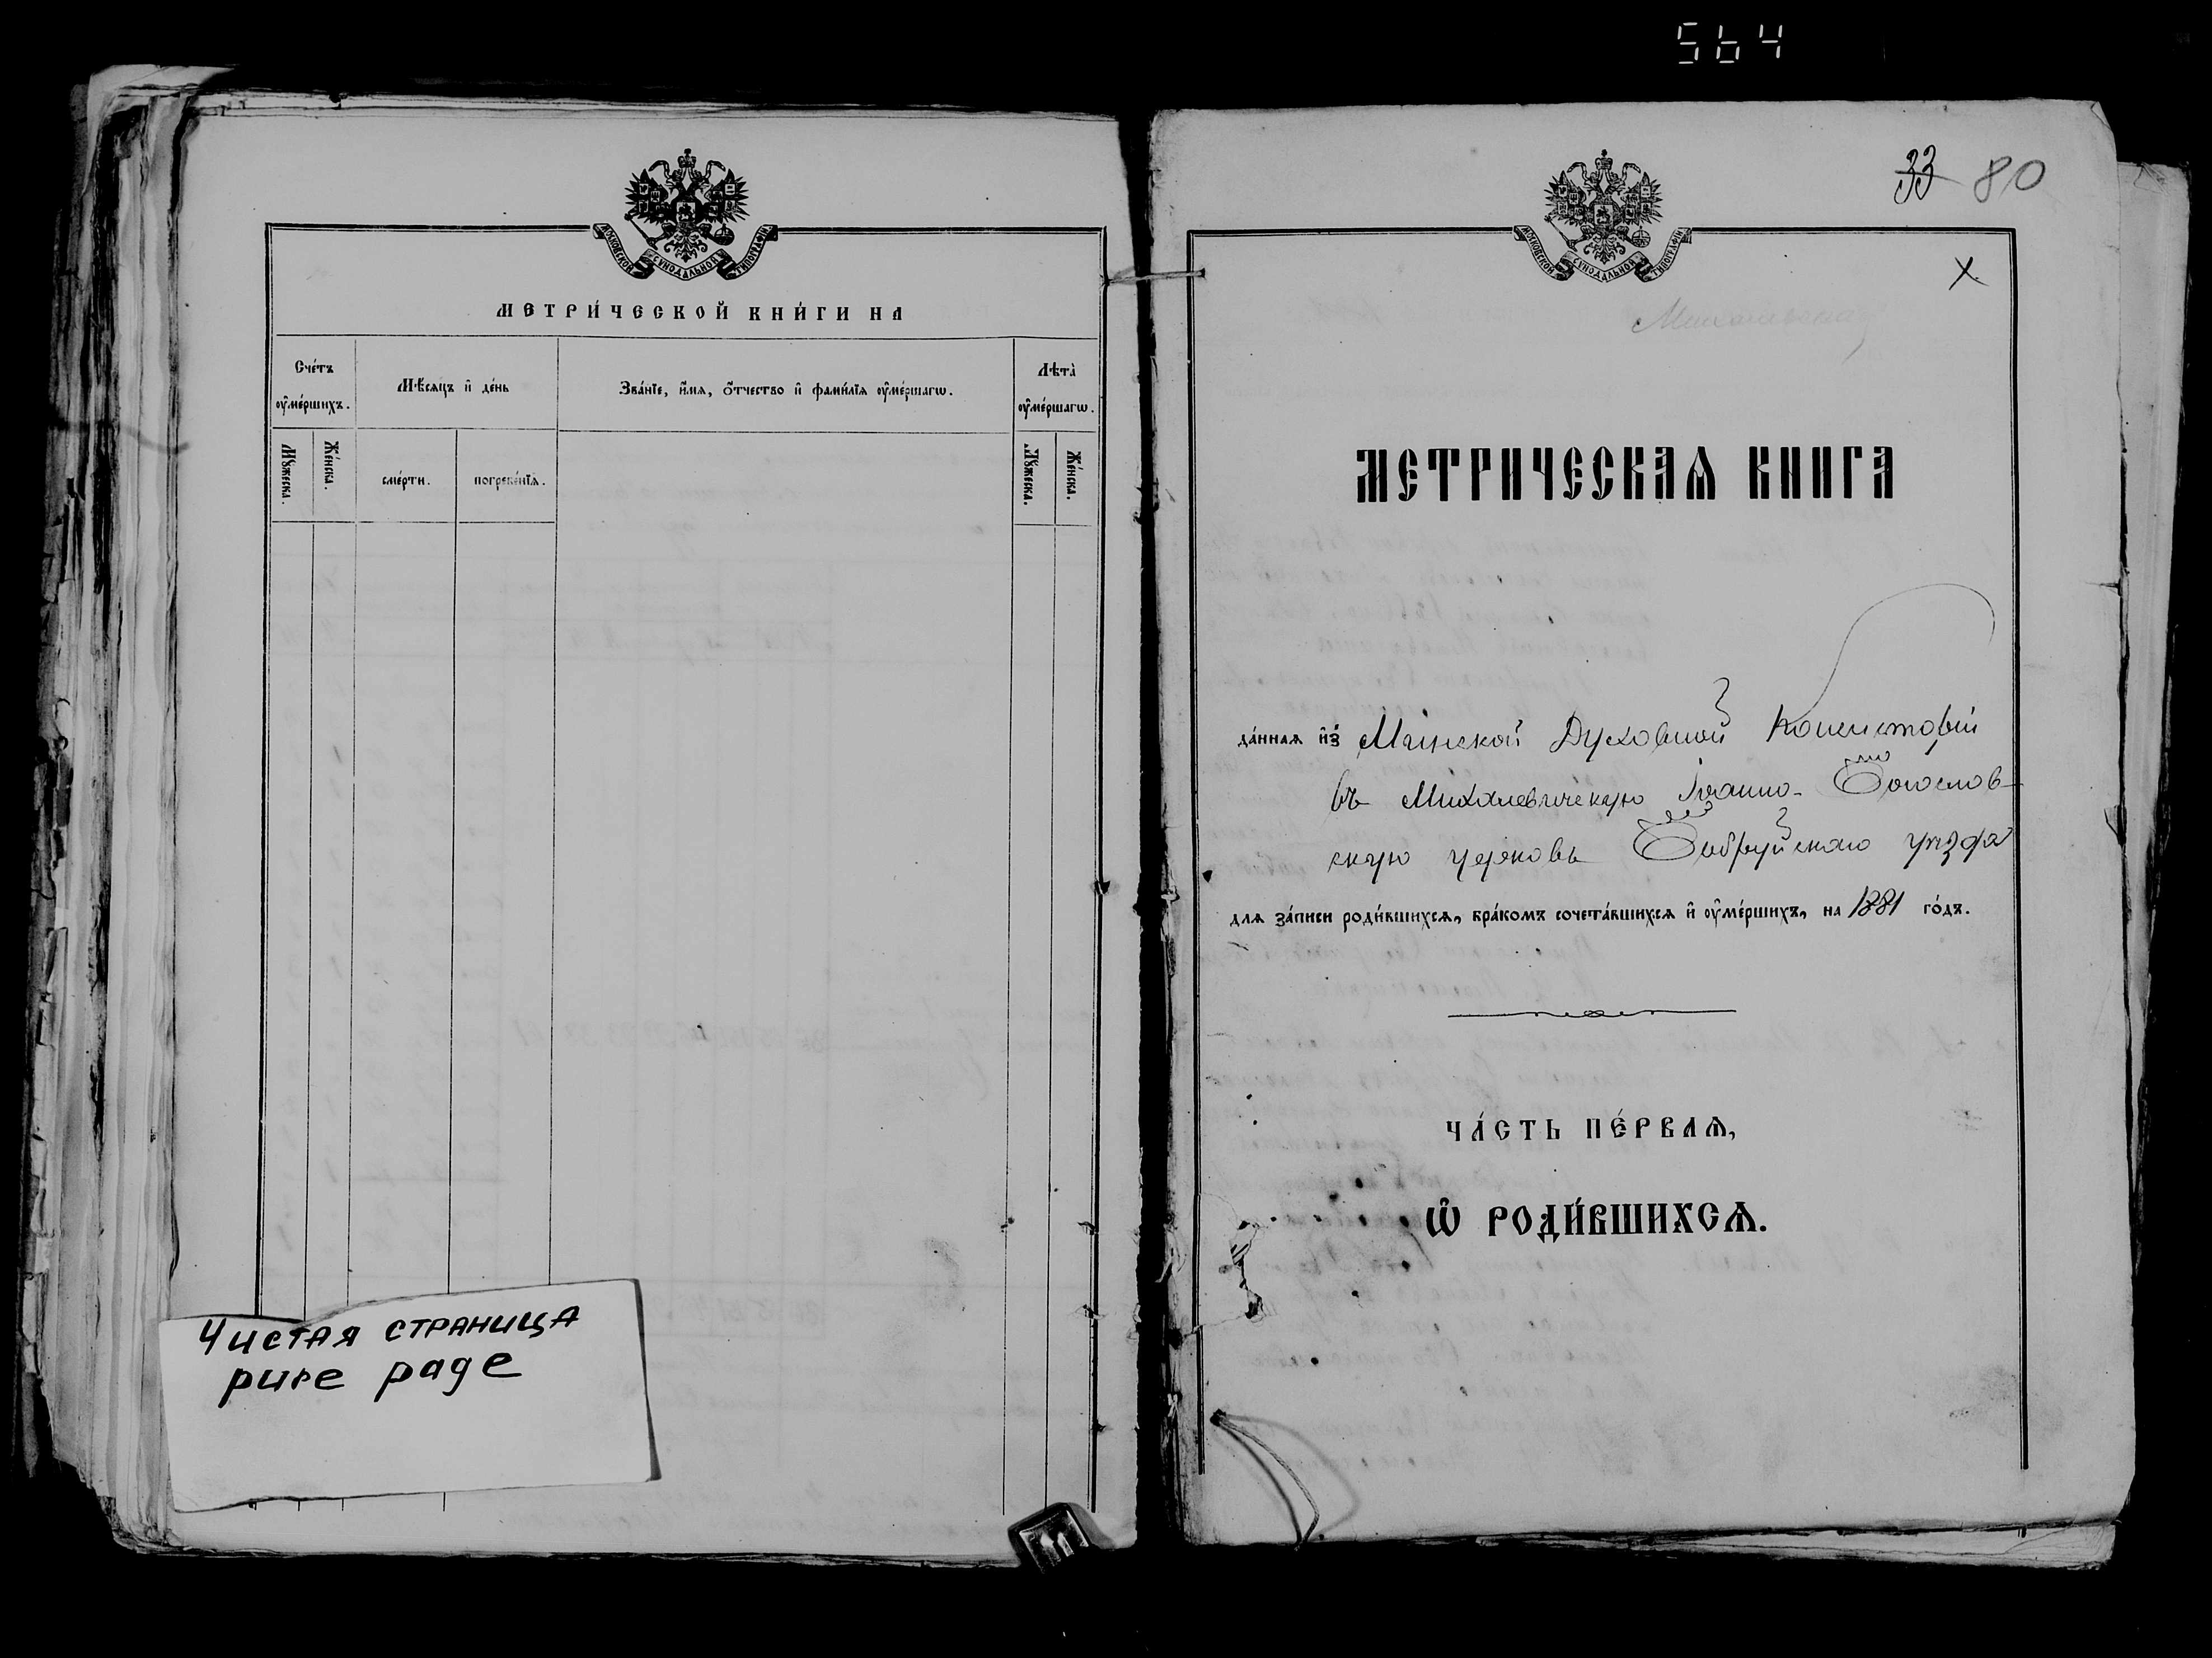 564
МОСКОВСКОЙ СУНОДАЛЬНОЙ ТИПОГРАФІИ
МЕТРИ́ЧЕСКОЙ КНИ́ГИ НА
Сче́тъ оу҆ме́ршихъ.
Мѣ́сяцъ и҆ де́нь
Зва́нїе, и҆́мѧ, ѻ҆́тчество и҆ фами́лїѧ оу҆ме́ршагѡ.
Лѣта̀ оу҆ме́ршагѡ.
Мꙋ́жеска.
Же́нска.
сме́рти.
погребе́нїѧ.
Мꙋ́жеска.
Же́нска.
Чистая страница
pure page
33 80
МОСКОВСКОЙ СУНОДАЛЬНОЙ ТИПОГРАФІИ
х
МЕТРИЧЕСКАѦ КНИГА
да́ннаѧ и҆з̾ Минской Духовной Консисторіи
въ Михалевическую Іоанно-Богослов-
скую церковь Бобруйскаго уѣзда
длѧ за́писи роди́вшихсѧ, бра́комъ сочета́вшихсѧ и҆ оу҆ме́ршихъ, на 1881 го́дъ.
ЧА́СТЬ ПЕ́РВАѦ,
Ѽ РОДИ́ВШИХСѦ.